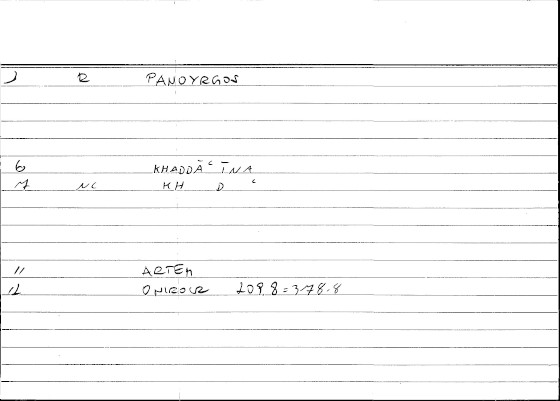 1 R PANOYRGOS
6 KHADDĀʿ ĪNA
7 NC KH D ʿ
11 ARTEM
12 ONIROCR 209.8=378.8